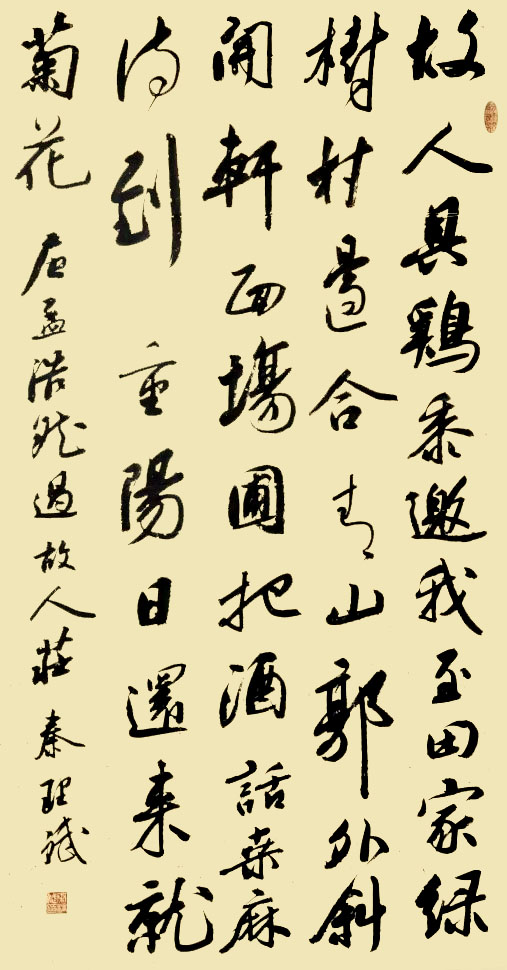 故人具鷄黍邀我至田家綠
樹村邊合青山郭外斜
開軒面場圃把酒話桑麻
待到重陽日還來就
菊花 右孟浩然過故人莊 秦理斌